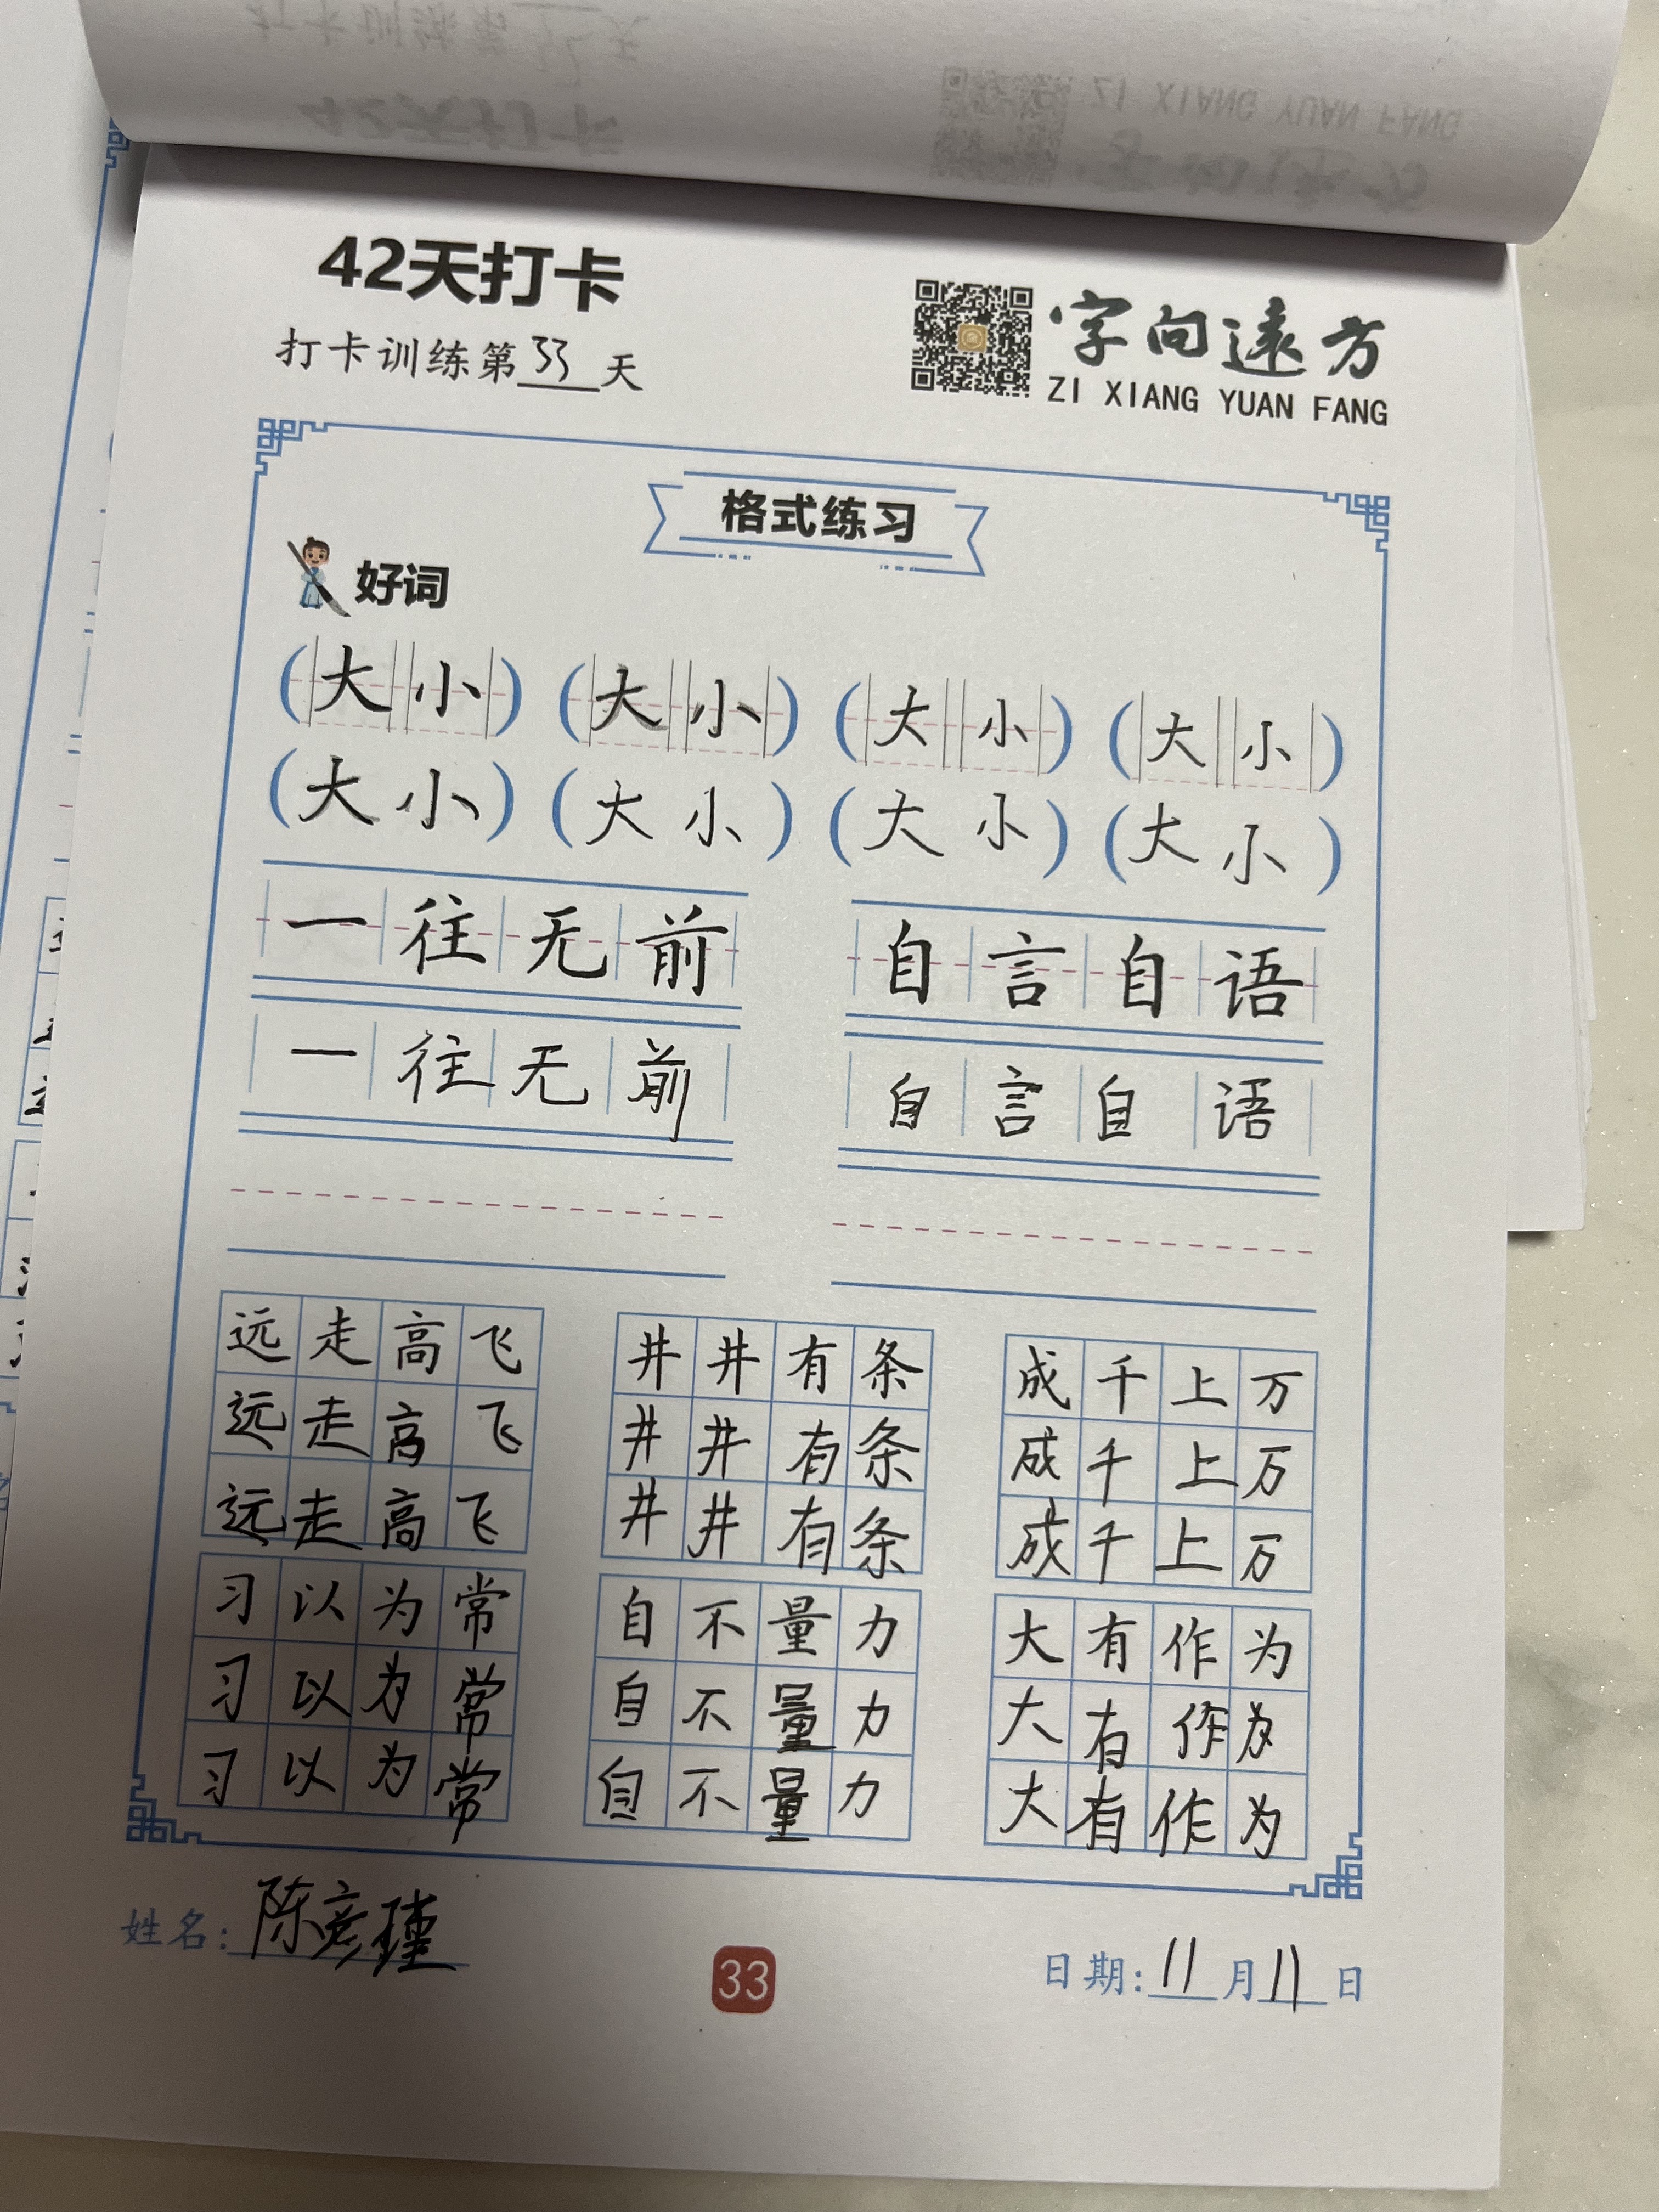 42天打卡
打卡训练第33天
字向遠方
ZI XIANG YUAN FANG
格式练习
好词
(大小) (大小) (大小) (大小)
(大小) (大小) (大小) (大小)
一往无前 自言自语
一往无前 自言自语
远走高飞 井井有条 成千上万
远走高飞 井井有条 成千上万
远走高飞 井井有条 成千上万
习以为常 自不量力 大有作为
习以为常 自不量力 大有作为
习以为常 自不量力 大有作为
姓名:陈彦瑾
33
日期:11月11日